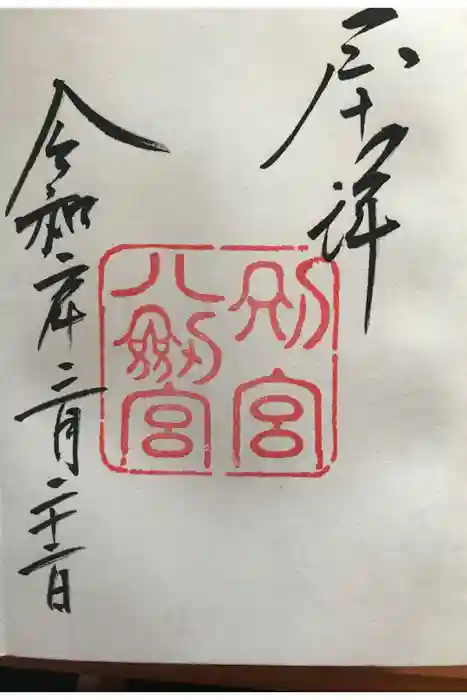 奉拝
別宮
八剱宮
令和二年二月二十二日